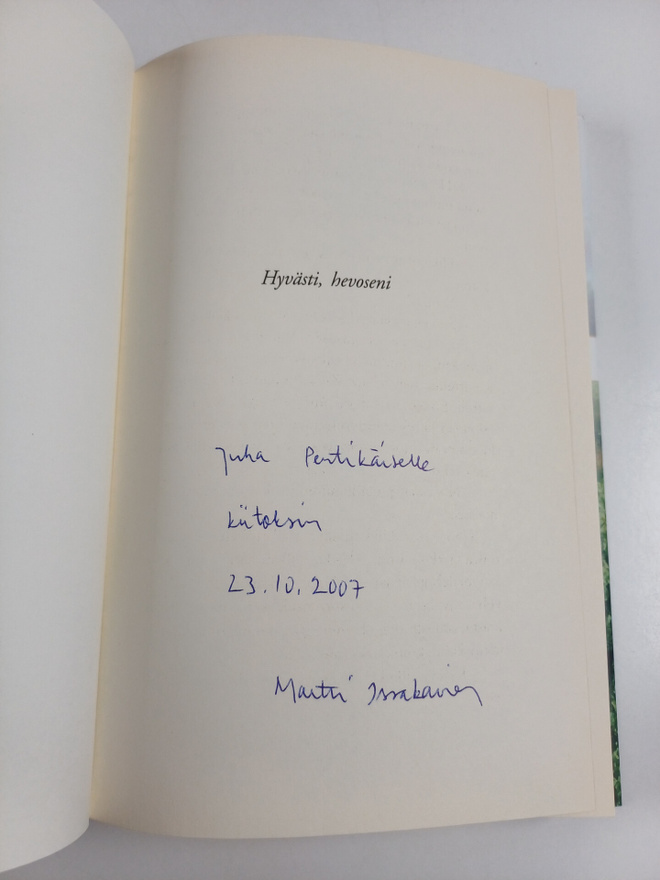 Hyvästi, hevoseni
Juha Pentikäiselle
kiitoksin
23.10.2007
Martti Issakainen